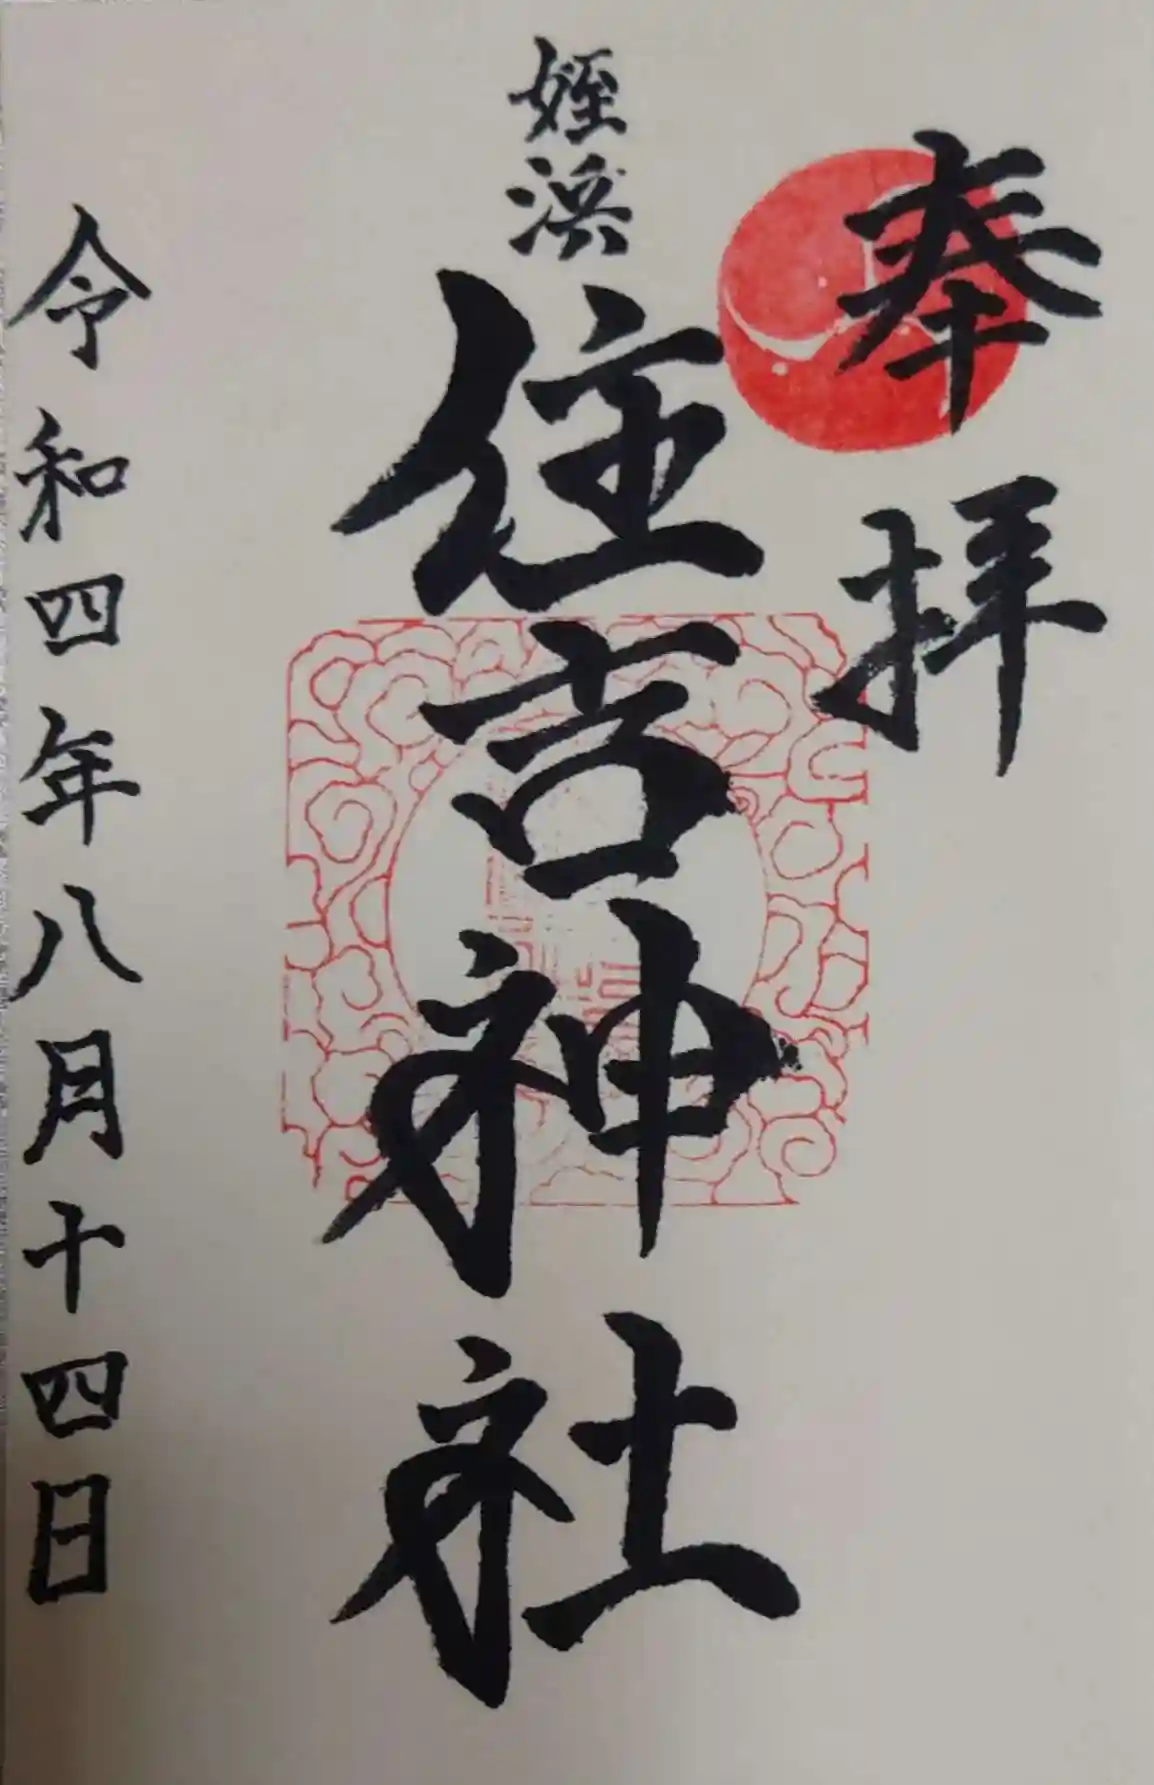 奉拝
姪浜
住吉神社
令和四年八月十四日